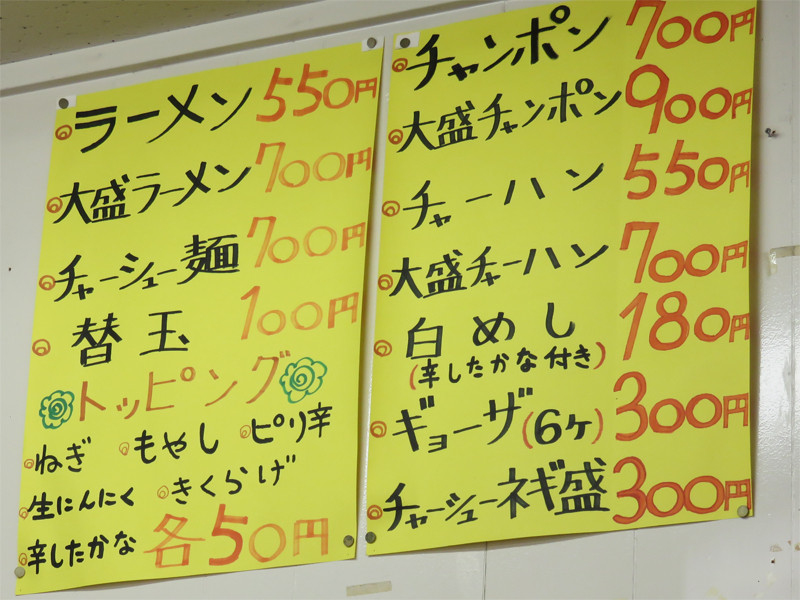 ラーメン 550円
大盛ラーメン 700円
チャーシュー麺 700円
替玉 100円
トッピング
ねぎ もやし ピリ辛
生にんにく きくらげ
辛したかな 各50円
チャンポン 700円
大盛チャンポン 900円
チャーハン 550円
大盛チャーハン 700円
白めし 180円
(辛したかな付き)
ギョーザ(6ケ) 300円
チャーシューネギ盛 300円